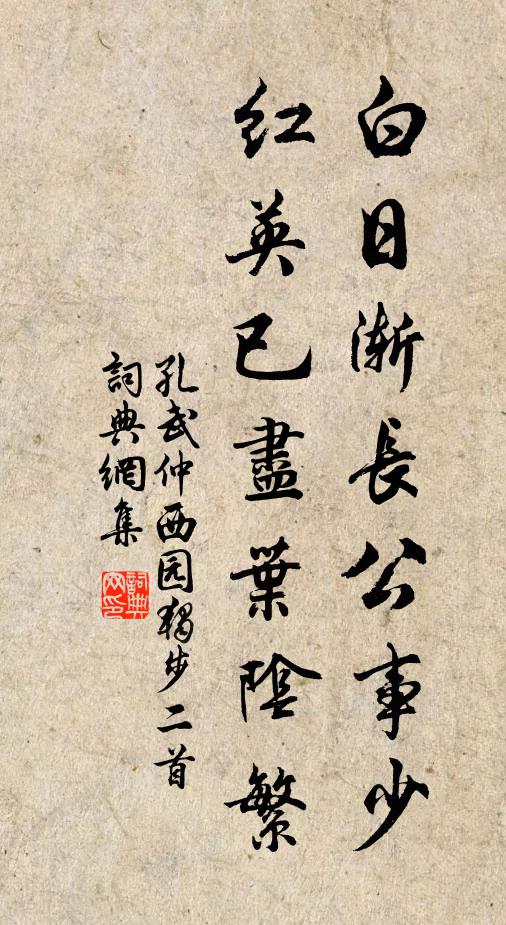 白日漸長公事少
紅英已盡葉陰繁
孔武仲西园獨步二首
詞典網集
詞典网印